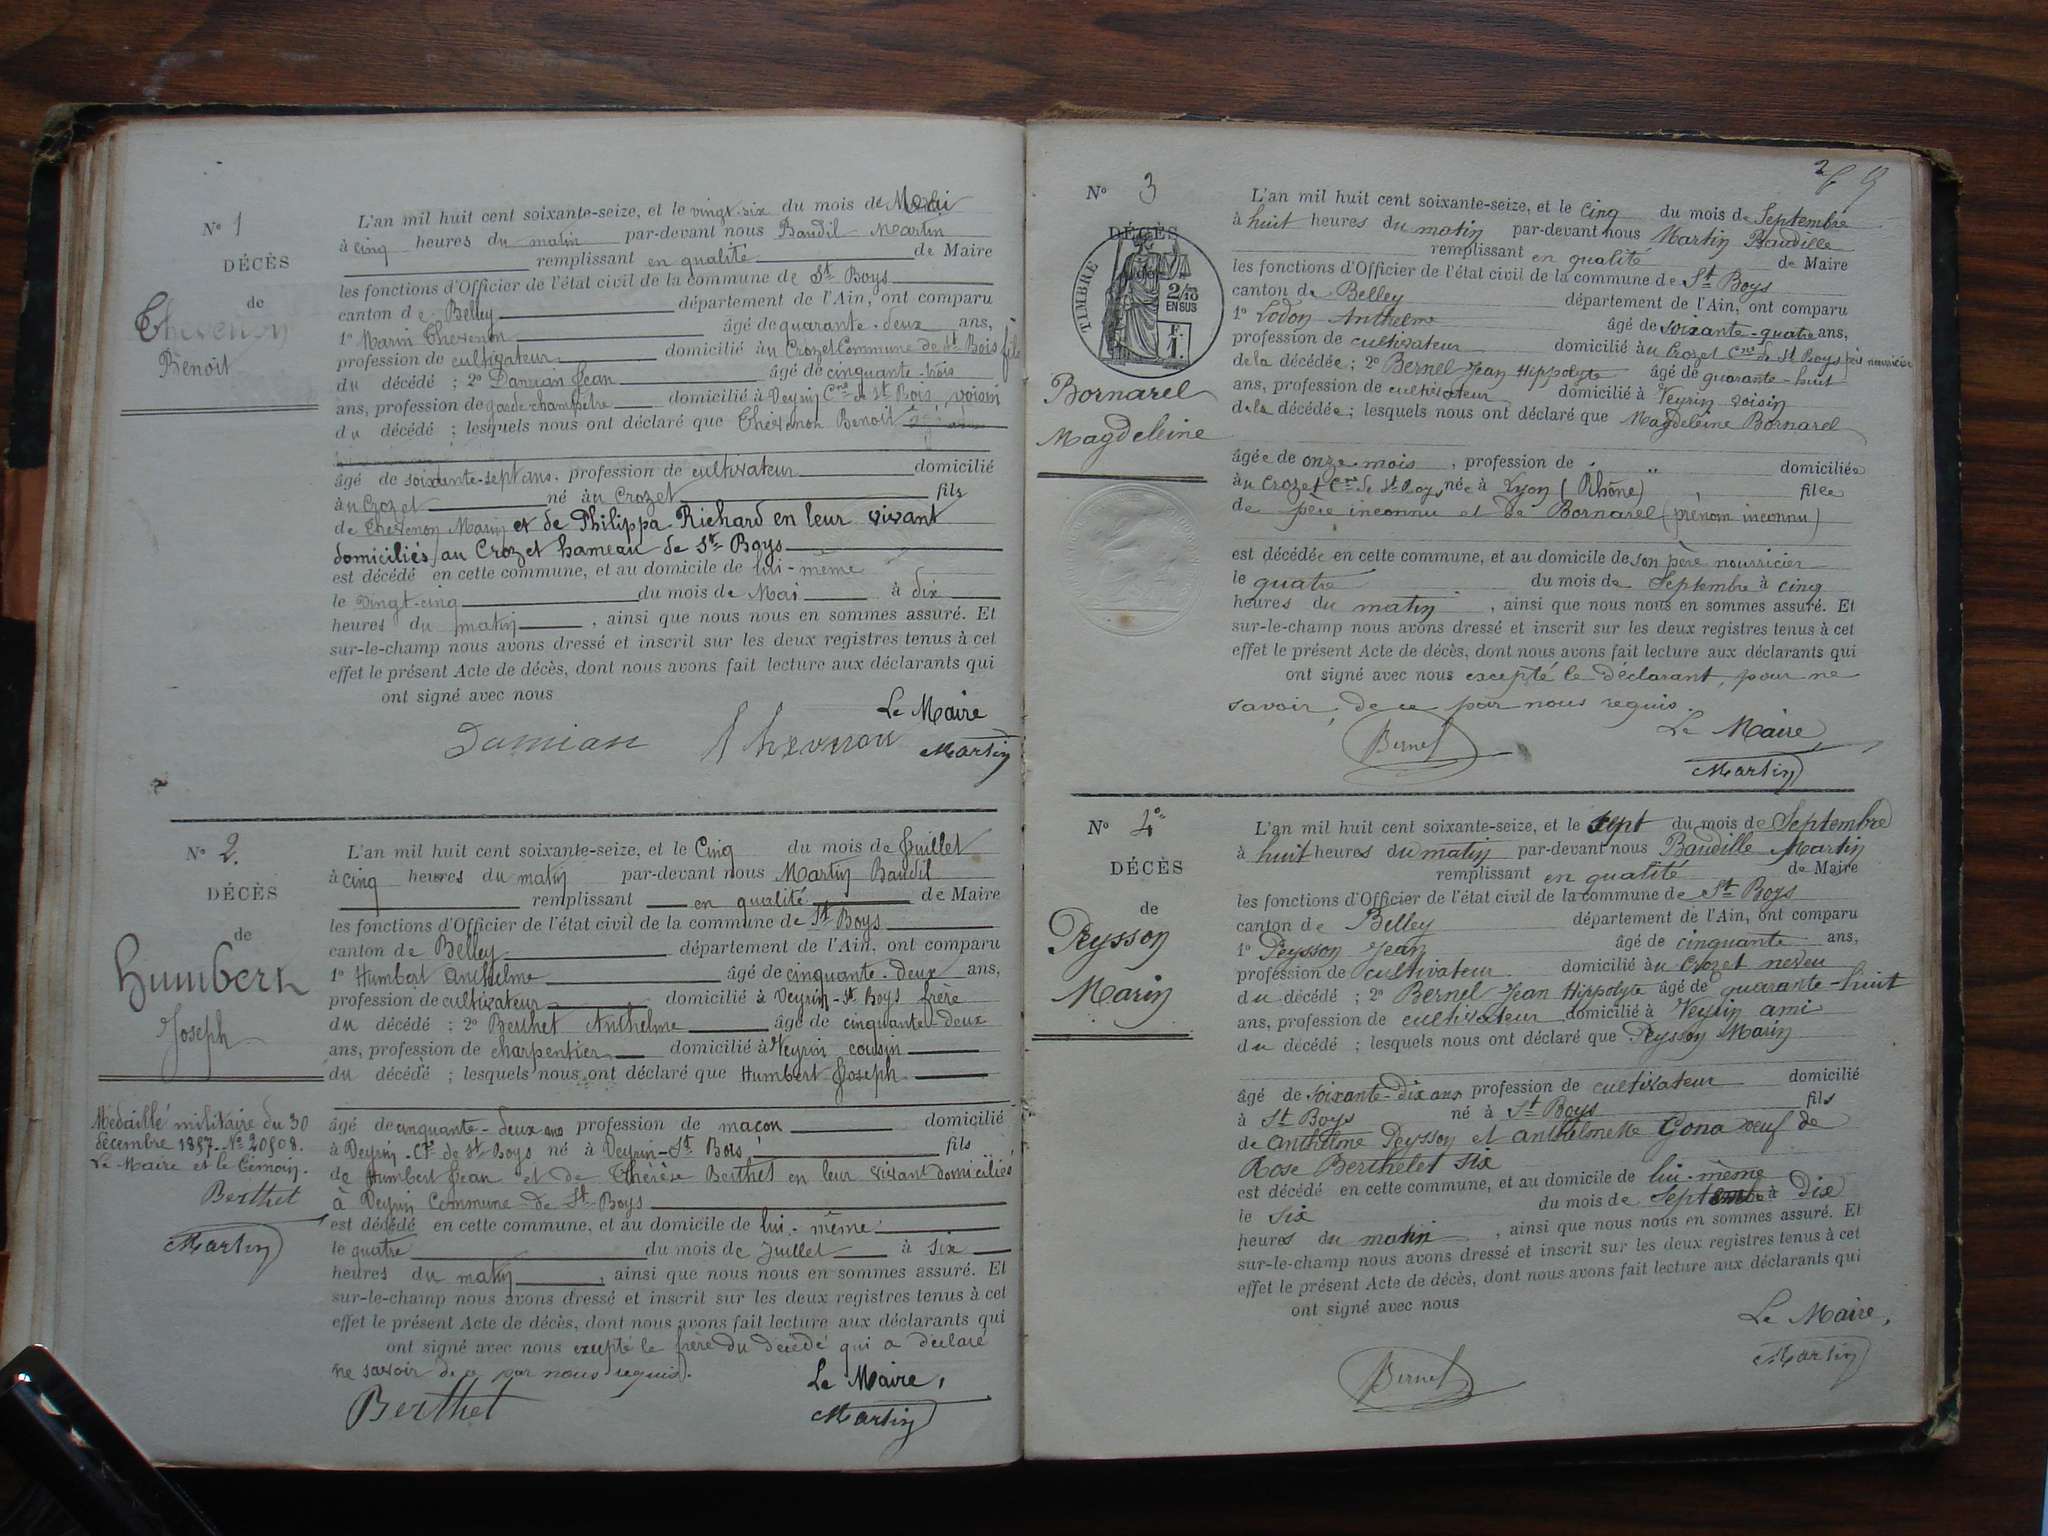 N° 1
DÉCÈS
de
Thevenon
Benoit
L'an mil huit cent soixante-seize, et le vingt-six du mois de Mai
à cinq heures du matin par-devant nous Baudil Martin
remplissant en qualité de Maire
les fonctions d'Officier de l'état civil de la commune de St Boys
canton de Belley département de l'Ain, ont comparu
1° Marin Thevenon âgé de quarante-deux ans,
profession de cultivateur domicilié au Crozet Commune de St Bois fils
du décédé ; 2° Damian Jean âgé de cinquante-trois
ans, profession de garde champêtre domicilié à Veyrin Cne de St Bois, voisin
du décédé ; lesquels nous ont déclaré que Thevenon Benoit
âgé de soixante-sept ans, profession de cultivateur domicilié
au Crozet né au Crozet fils
de Thevenon Marin et de Philippa Richard en leur vivant
domiciliés au Crozet hameau de St Boys
est décédé en cette commune, et au domicile de lui-même
le vingt-cinq du mois de Mai à dix
heures du matin, ainsi que nous nous en sommes assuré. Et
sur-le-champ nous avons dressé et inscrit sur les deux registres tenus à cet
effet le présent Acte de décès, dont nous avons fait lecture aux déclarants qui
ont signé avec nous
Le Maire
Damian Thevenon Martin
N° 2.
DÉCÈS
de
Humbert
Joseph
Médaillé militaire du 30
décembre 1857. N° 20508.
Le Maire et le témoin.
Berthet
Martin
L'an mil huit cent soixante-seize, et le Cinq du mois de Juillet
à cinq heures du matin par-devant nous Martin Baudil
remplissant en qualité de Maire
les fonctions d'Officier de l'état civil de la commune de St Boys
canton de Belley département de l'Ain, ont comparu
1° Humbert Anthelme âgé de cinquante-deux ans,
profession de cultivateur domicilié à Veyrin-St Boys frère
du décédé ; 2° Berthet Anthelme âgé de cinquante deux
ans, profession de charpentier domicilié à Veyrin cousin
du décédé ; lesquels nous ont déclaré que Humbert Joseph
âgé de cinquante-deux ans profession de maçon domicilié
à Veyrin. Cne de St Boys né à Veyrin-St Bois fils
de Humbert Jean et de Thérèse Berthet en leur vivant domiciliés
à Veyrin Commune de St Boys
est décédé en cette commune, et au domicile de lui-même
le quatre du mois de Juillet à six
heures du matin, ainsi que nous nous en sommes assuré. Et
sur-le-champ nous avons dressé et inscrit sur les deux registres tenus à cet
effet le présent Acte de décès, dont nous avons fait lecture aux déclarants qui
ont signé avec nous excepté le frère du décédé qui a déclaré
ne savoir de ce par nous requis.
Le Maire,
Berthet Martin
N° 3
DÉCÈS
de
TIMBRE
2/10
EN SUS
F.
1.
Bornarel
Magdeleine
L'an mil huit cent soixante-seize, et le Cinq du mois de Septembre
à huit heures du matin par-devant nous Martin Baudille
remplissant en qualité de Maire
les fonctions d'Officier de l'état civil de la commune de St Boys
canton de Belley département de l'Ain, ont comparu
1° Lodon Anthelme âgé de soixante-quatre ans,
profession de cultivateur domicilié au Crozet Cne de St Boys père nourricier
de la décédée ; 2° Bernel Jean Hippolyte âgé de quarante-huit
ans, profession de cultivateur domicilié à Veyrin voisin
de la décédée ; lesquels nous ont déclaré que Magdeleine Bornarel
âgée de onze mois, profession de " domiciliée
au Crozet Cne de St Boys née à Lyon (Rhône) fille
de père inconnu et de Bornarel (prénom inconnu)
est décédée en cette commune, et au domicile de son père nourricier
le quatre du mois de Septembre à cinq
heures du matin, ainsi que nous nous en sommes assuré. Et
sur-le-champ nous avons dressé et inscrit sur les deux registres tenus à cet
effet le présent Acte de décès, dont nous avons fait lecture aux déclarants qui
ont signé avec nous excepté le déclarant, pour ne
savoir, de ce par nous requis.
Le Maire,
Bernel Martin
N° 4
DÉCÈS
de
Peysson
Marin
L'an mil huit cent soixante-seize, et le sept du mois de Septembre
à huit heures du matin par-devant nous Baudille Martin
remplissant en qualité de Maire
les fonctions d'Officier de l'état civil de la commune de St Boys
canton de Belley département de l'Ain, ont comparu
1° Peysson Jean âgé de cinquante ans,
profession de cultivateur domicilié au Crozet neveu
du décédé ; 2° Bernel Jean Hippolyte âgé de quarante-huit
ans, profession de cultivateur domicilié à Veyrin ami
du décédé ; lesquels nous ont déclaré que Peysson Marin
âgé de soixante-dix ans profession de cultivateur domicilié
à St Boys né à St Boys fils
de Anthelme Peysson et Anthelmette Gona veuf de
Rose Berthelet six
est décédé en cette commune, et au domicile de lui-même
le six du mois de Septembre à dix
heures du matin, ainsi que nous nous en sommes assuré. Et
sur-le-champ nous avons dressé et inscrit sur les deux registres tenus à cet
effet le présent Acte de décès, dont nous avons fait lecture aux déclarants qui
ont signé avec nous
Le Maire,
Bernel Martin